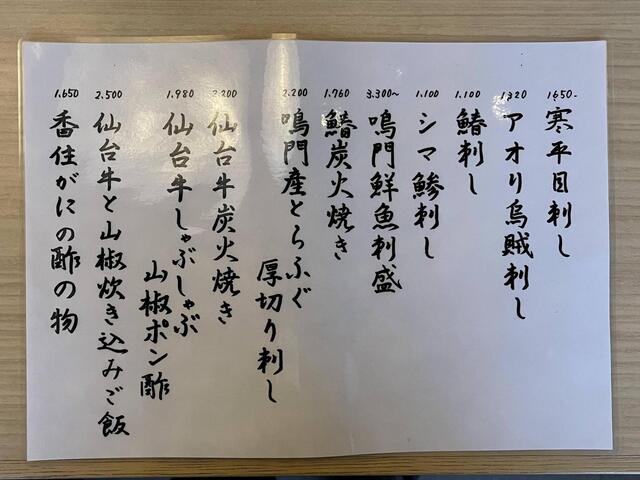 1650-
寒平目刺し
1,320
アオリ烏賊刺し
1,100
鰆刺し
1,100
シマ鯵刺し
3,300〜
鳴門鮮魚刺盛
1,760
鰆炭火焼き
2,200
鳴門産とらふぐ
厚切り刺し
2,200
仙台牛炭火焼き
1,980
仙台牛しゃぶしゃぶ
山椒ポン酢
2,500
仙台牛と山椒炊き込みご飯
1,650
香住がにの酢の物